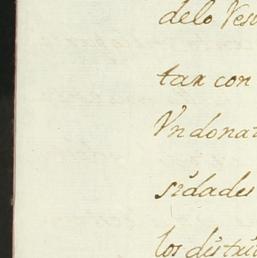 delo Ves
tax con
Vn dona
sidades
los distri